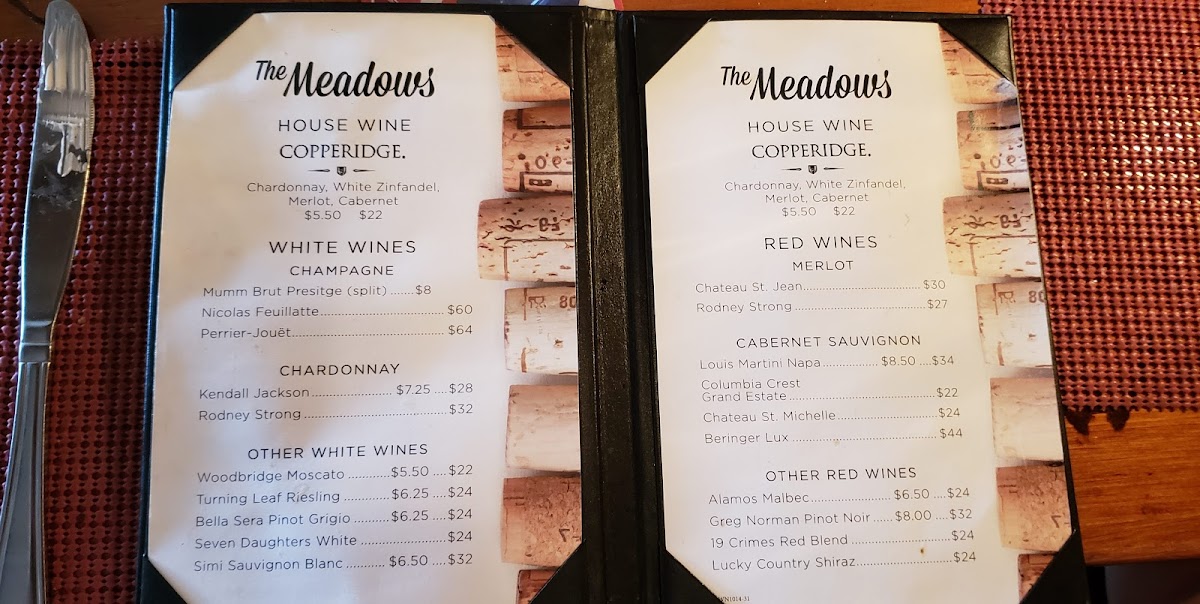 The Meadows
HOUSE WINE
COPPERIDGE.
Chardonnay, White Zinfandel,
Merlot, Cabernet
$5.50 $22
WHITE WINES
CHAMPAGNE
Mumm Brut Presitge (split) ......$8
Nicolas Feuillatte............................ $60
Perrier-Jouët.................................. $64
CHARDONNAY
Kendall Jackson.................... $7.25 ....$28
Rodney Strong .................................. $32
OTHER WHITE WINES
Woodbridge Moscato ..........$5.50 ....$22
Turning Leaf Riesling ...........$6.25 ....$24
Bella Sera Pinot Grigio .........$6.25 ....$24
Seven Daughters White .....................$24
Simi Sauvignon Blanc ..........$6.50 ....$32
The Meadows
HOUSE WINE
COPPERIDGE.
Chardonnay, White Zinfandel,
Merlot, Cabernet
$5.50 $22
RED WINES
MERLOT
Chateau St. Jean............................ $30
Rodney Strong ................................ $27
CABERNET SAUVIGNON
Louis Martini Napa.............. $8.50 ....$34
Columbia Crest
Grand Estate ...................................$22
Chateau St. Michelle........................ $24
Beringer Lux ................................... $44
OTHER RED WINES
Alamos Malbec.................... $6.50 ....$24
Greg Norman Pinot Noir ..... $8.00 ....$32
19 Crimes Red Blend ........................$24
Lucky Country Shiraz.......................$24